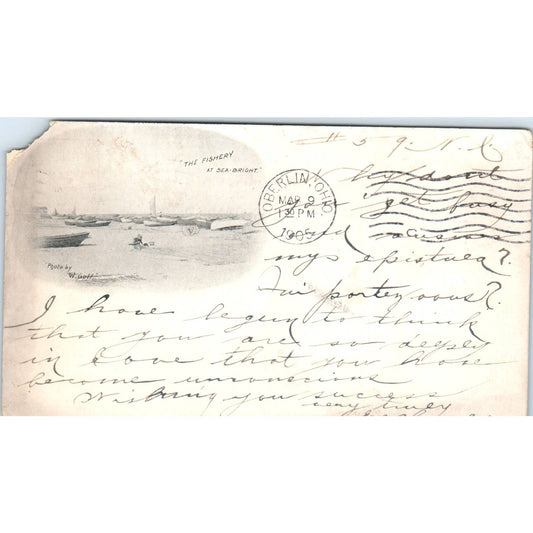 "THE FISHERY
AT SEA-BRIGHT."
Photo by
OBERLIN, OHIO
MAR 9
130 PM
1905
# 59.
Why dont
get busy
and
my epistuea?.
portez vous?.
I have begun to think
that you are so deeply
in love that you have
become unconscious
Wishing you success
very truly